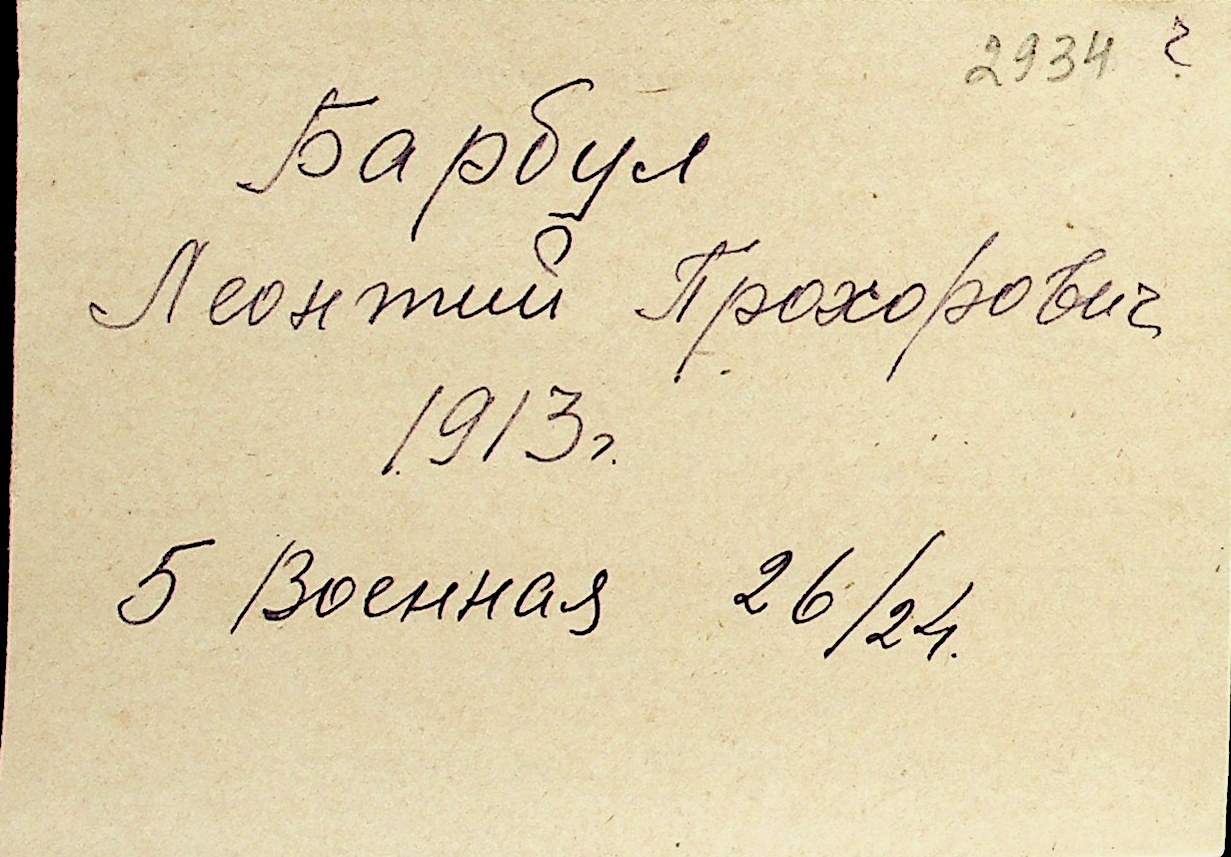 2934
Барбул
Леонтий Прохорович
1913г.
5 Военная 26/24.